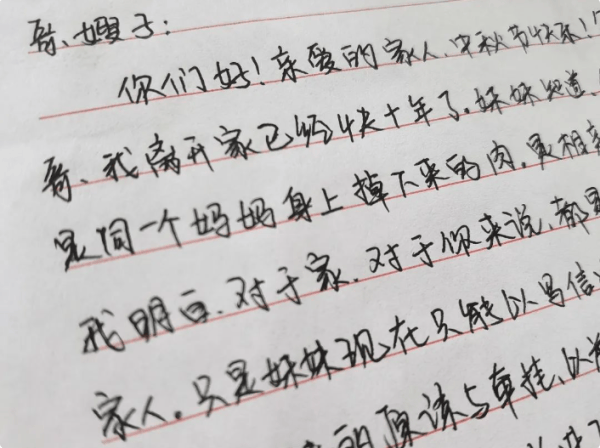 哥、嫂子：
你们好！亲爱的家人、中秋节快乐！
哥、我离开家已经快十年了。妹妹知道、
是同一个妈妈身上掉下来的肉。是相亲
我明白、对于家、对于你来说、都是
家人。只是妹妹现在只能以写信
的原谅与牵挂、以